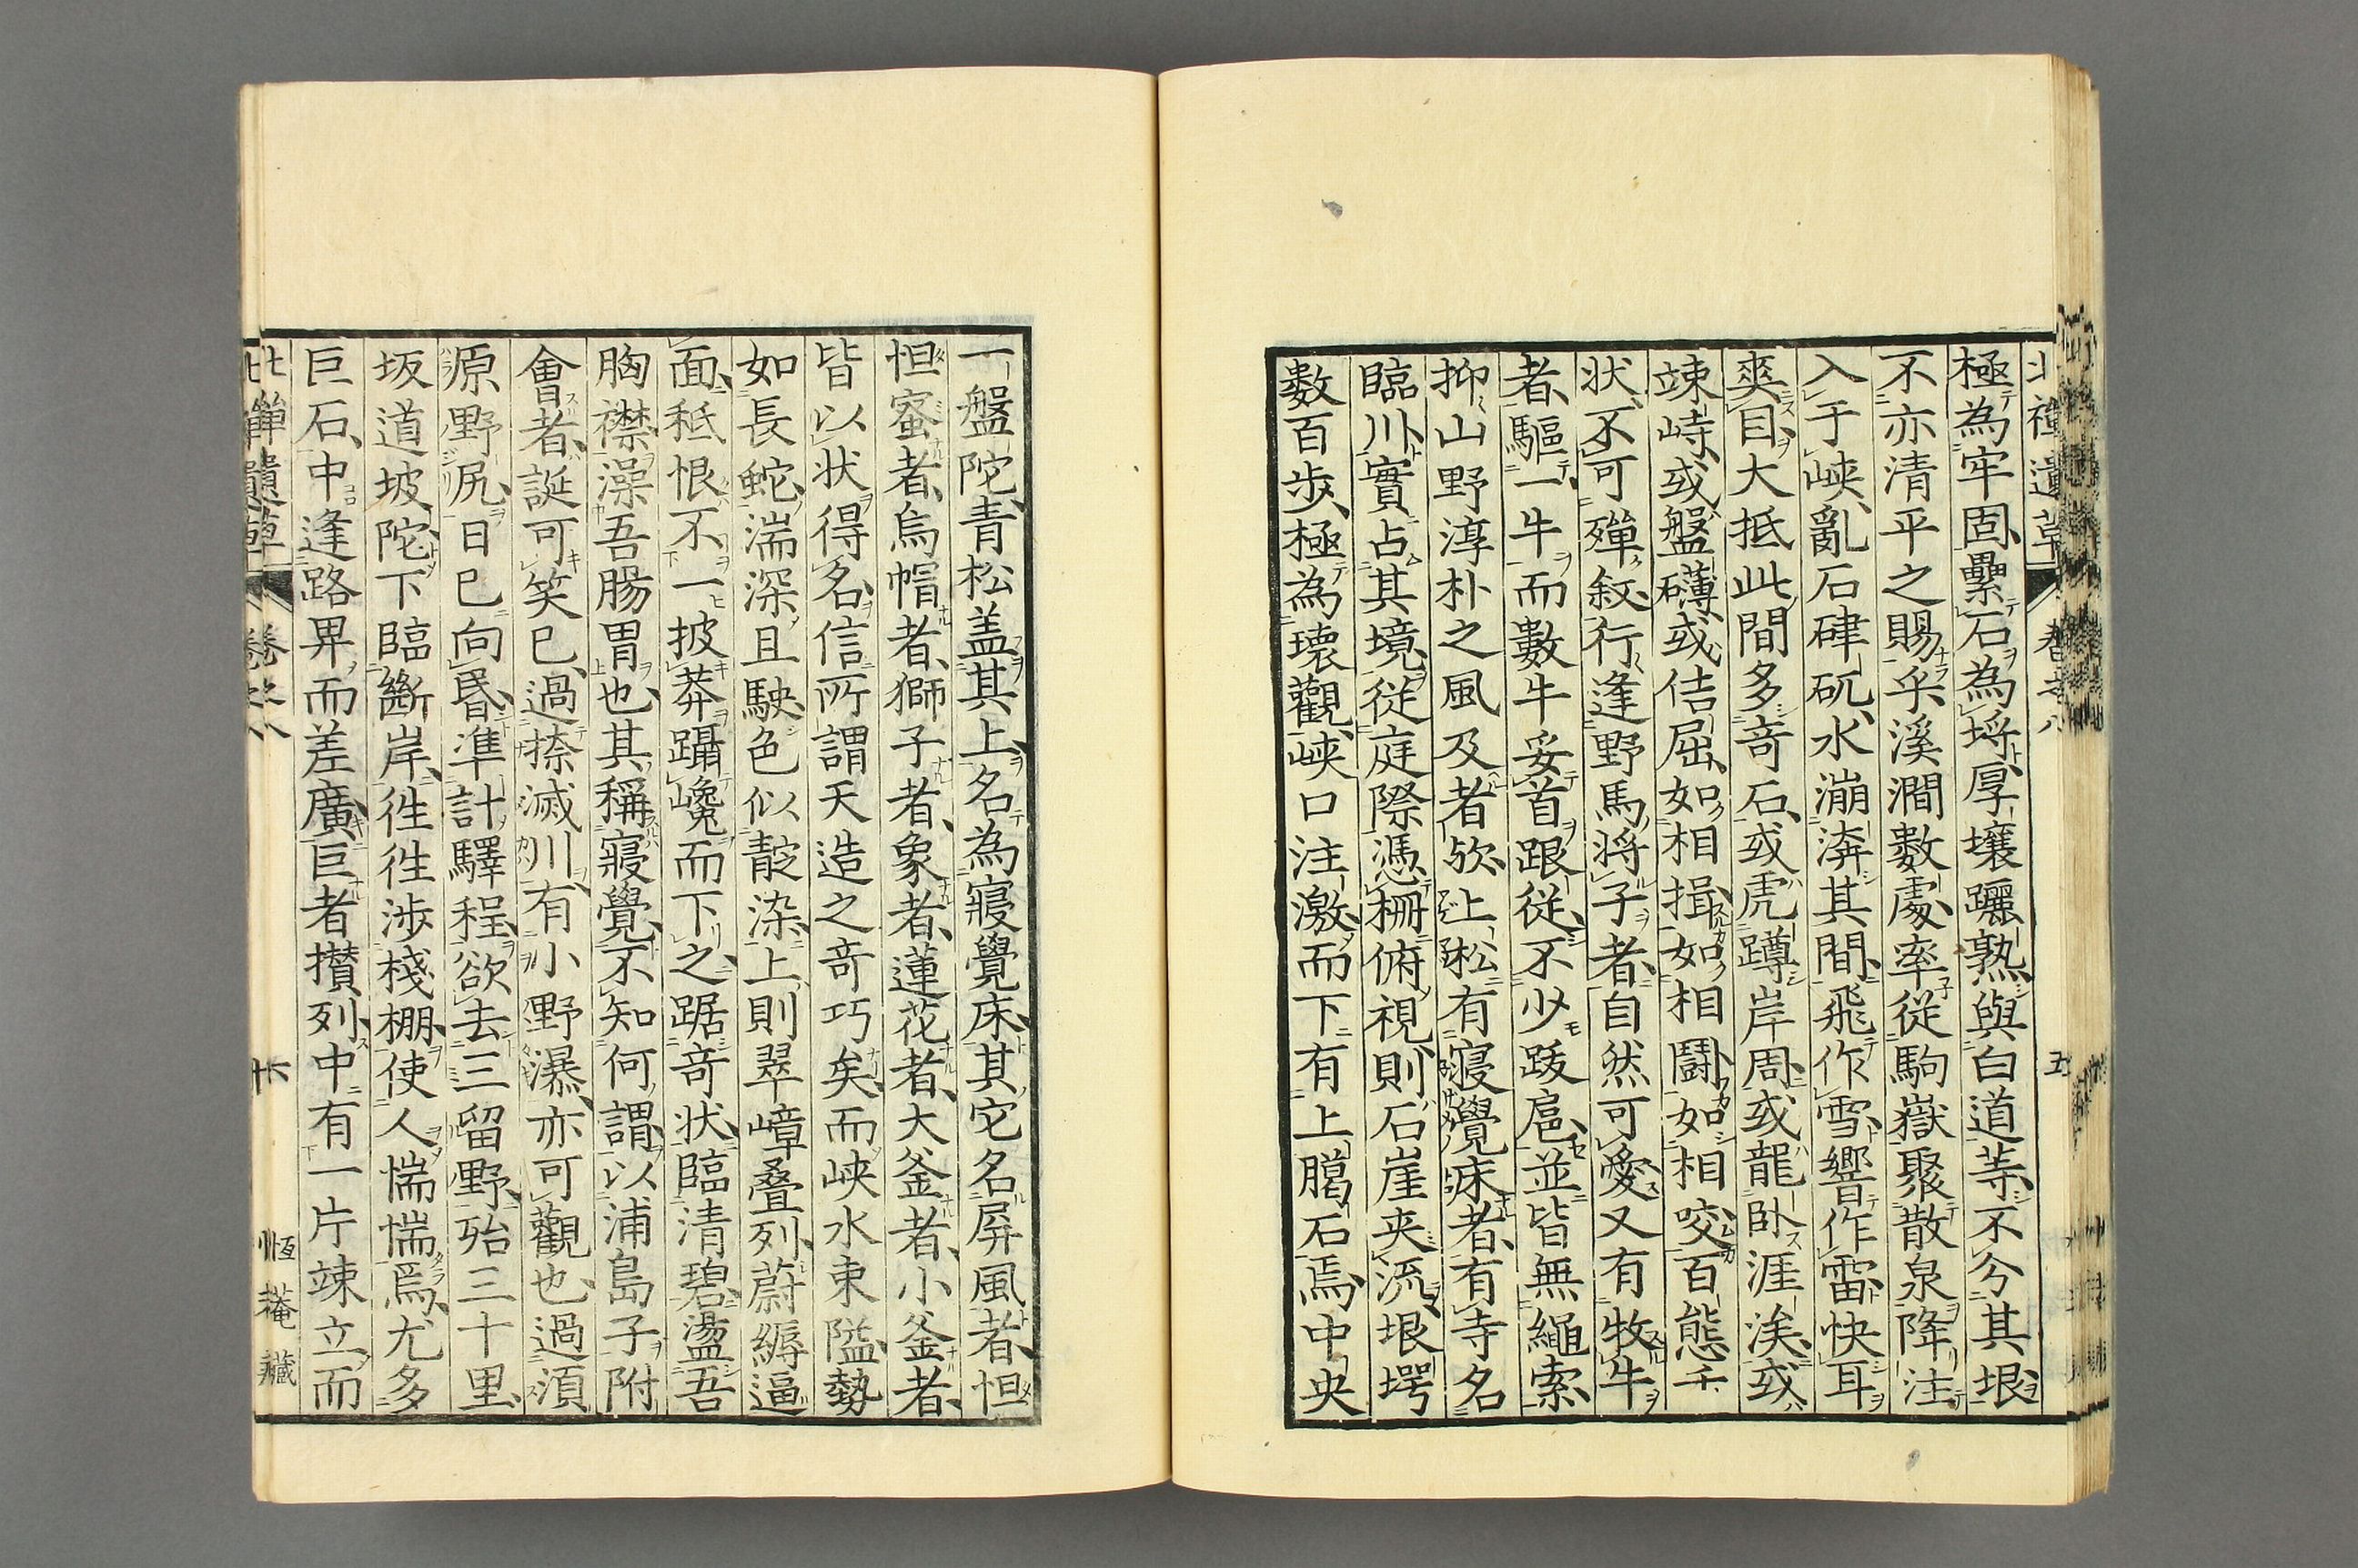 北禪遺草 卷之八 五
極為牢固、壘石為埒、厚壤躧熟、與白道等、不分其垠、
不亦清平之賜乎、溪澗數處、率從駒嶽聚散泉降注
入于峽、亂石硉矹、水漰渀其間、飛作雪、響作雷、快耳
爽目、大抵此間多奇石、或虎蹲岸周、或龍臥涯涘、或
竦峙、或盤礴、或佶屈、如相揖、如相鬪、如相咬、百態千
状、不可殫敍、行逢野馬將子者、自然可愛、又有牧牛
者、驅一牛而數牛妥首跟從、不少跋扈、並皆無繩索、
抑山野淳朴之風及者歟、上松有寢覺床者、有寺名
臨川、實占其境、從庭際憑柵俯視、則石崖夾流、垠堮
數百步、極為瓌觀、峽口注激、而下有上𦝫石焉、中央
一盤陀、青松盖其上、名為寢覺床、其它名屏風者、怛
怛蜜者、烏帽者、獅子者、象者、蓮花者、大釜者、小釜者、
皆以状得名、信所謂天造之奇巧矣、而峽水東隘勢
如長蛇、湍深且駛、色似靛染、上則翠嶂叠列、蔚縟逼
面、秪恨不一披莽躡巉而下、之踞奇状、臨清碧、盪吾
胸襟、澡吾腸胃也、其稱寢覺、不知何謂、以浦島子附
會者、誕可笑已、過捺滅川、有小野瀑、亦可觀也、過湏
原野尻、日已向昏、準計驛程、欲去三留野、殆三十里、
坂道坡陀、下臨斷岸、徃徃涉棧棚、使人惴惴焉、尤多
巨石、中逢路畀而差廣、巨者攅列、中有一片竦立、而
北禪遺草 卷之八 六 恆菴藏